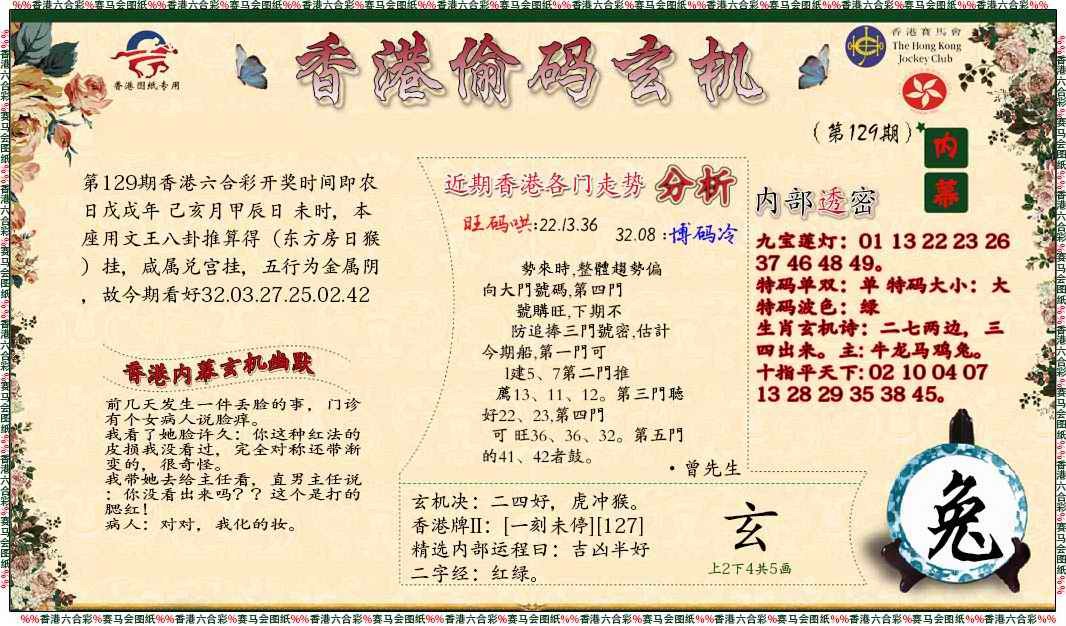 %%香港六合彩%赛马会图纸%%香港六合彩%赛马会图纸%%香港六合彩%赛马会图纸%%香港六合彩%赛马会图纸%%香港六合彩%赛马会图纸%%香港六合彩%赛马会图纸%%香港六合彩%%
香港图纸专用
香港偷码玄机
香港賽馬會
The Hong Kong
Jockey Club
（第129期）
内
幕
第129期香港六合彩开奖时间即农
日戊戌年 己亥月甲辰日 未时，本
座用文王八卦推算得（东方房日猴
）挂，咸属兑宫挂，五行为金属阴
，故今期看好32.03.27.25.02.42
香港内幕玄机幽默
前几天发生一件丢脸的事，门诊
有个女病人说脸痒。
我看了她脸许久：你这种红法的
皮损我没看过，完全对称还带渐
变的，很奇怪。
我带她去给主任看，直男主任说
：你没看出来吗？？这个是打的
腮红！
病人：对对，我化的妆。
近期香港各门走势 分析
旺码哄:22.13.36
32.08 :博码冷
勢來時,整體趨勢偏
向大門號碼,第四門
號購旺,下期不
防追捧三門號密,估計
今期船,第一門可
l建5、7第二門推
薦13、11、12。第三門聴
好22、23,第四門
可 旺36、36、32。第五門
的41、42者鼓。
·曾先生
玄机决：二四好，虎冲猴。
香港牌II：[一刻未停][127]
精选内部运程曰：吉凶半好
二字经：红绿。
玄
上2下4共5画
内部透密
九宝莲灯：01 13 22 23 26
37 46 48 49。
特码单双：单 特码大小：大
特码波色：绿
生肖玄机诗：二七两边，三
四出来。主: 牛龙马鸡兔。
十指平天下: 02 10 04 07
13 28 29 35 38 45。
兔
%%香港六合彩%赛马会图纸%%香港六合彩%赛马会图纸%%香港六合彩%赛马会图纸%%香港六合彩%赛马会图纸%%香港六合彩%赛马会图纸%%香港六合彩%赛马会图纸%%香港六合彩%%